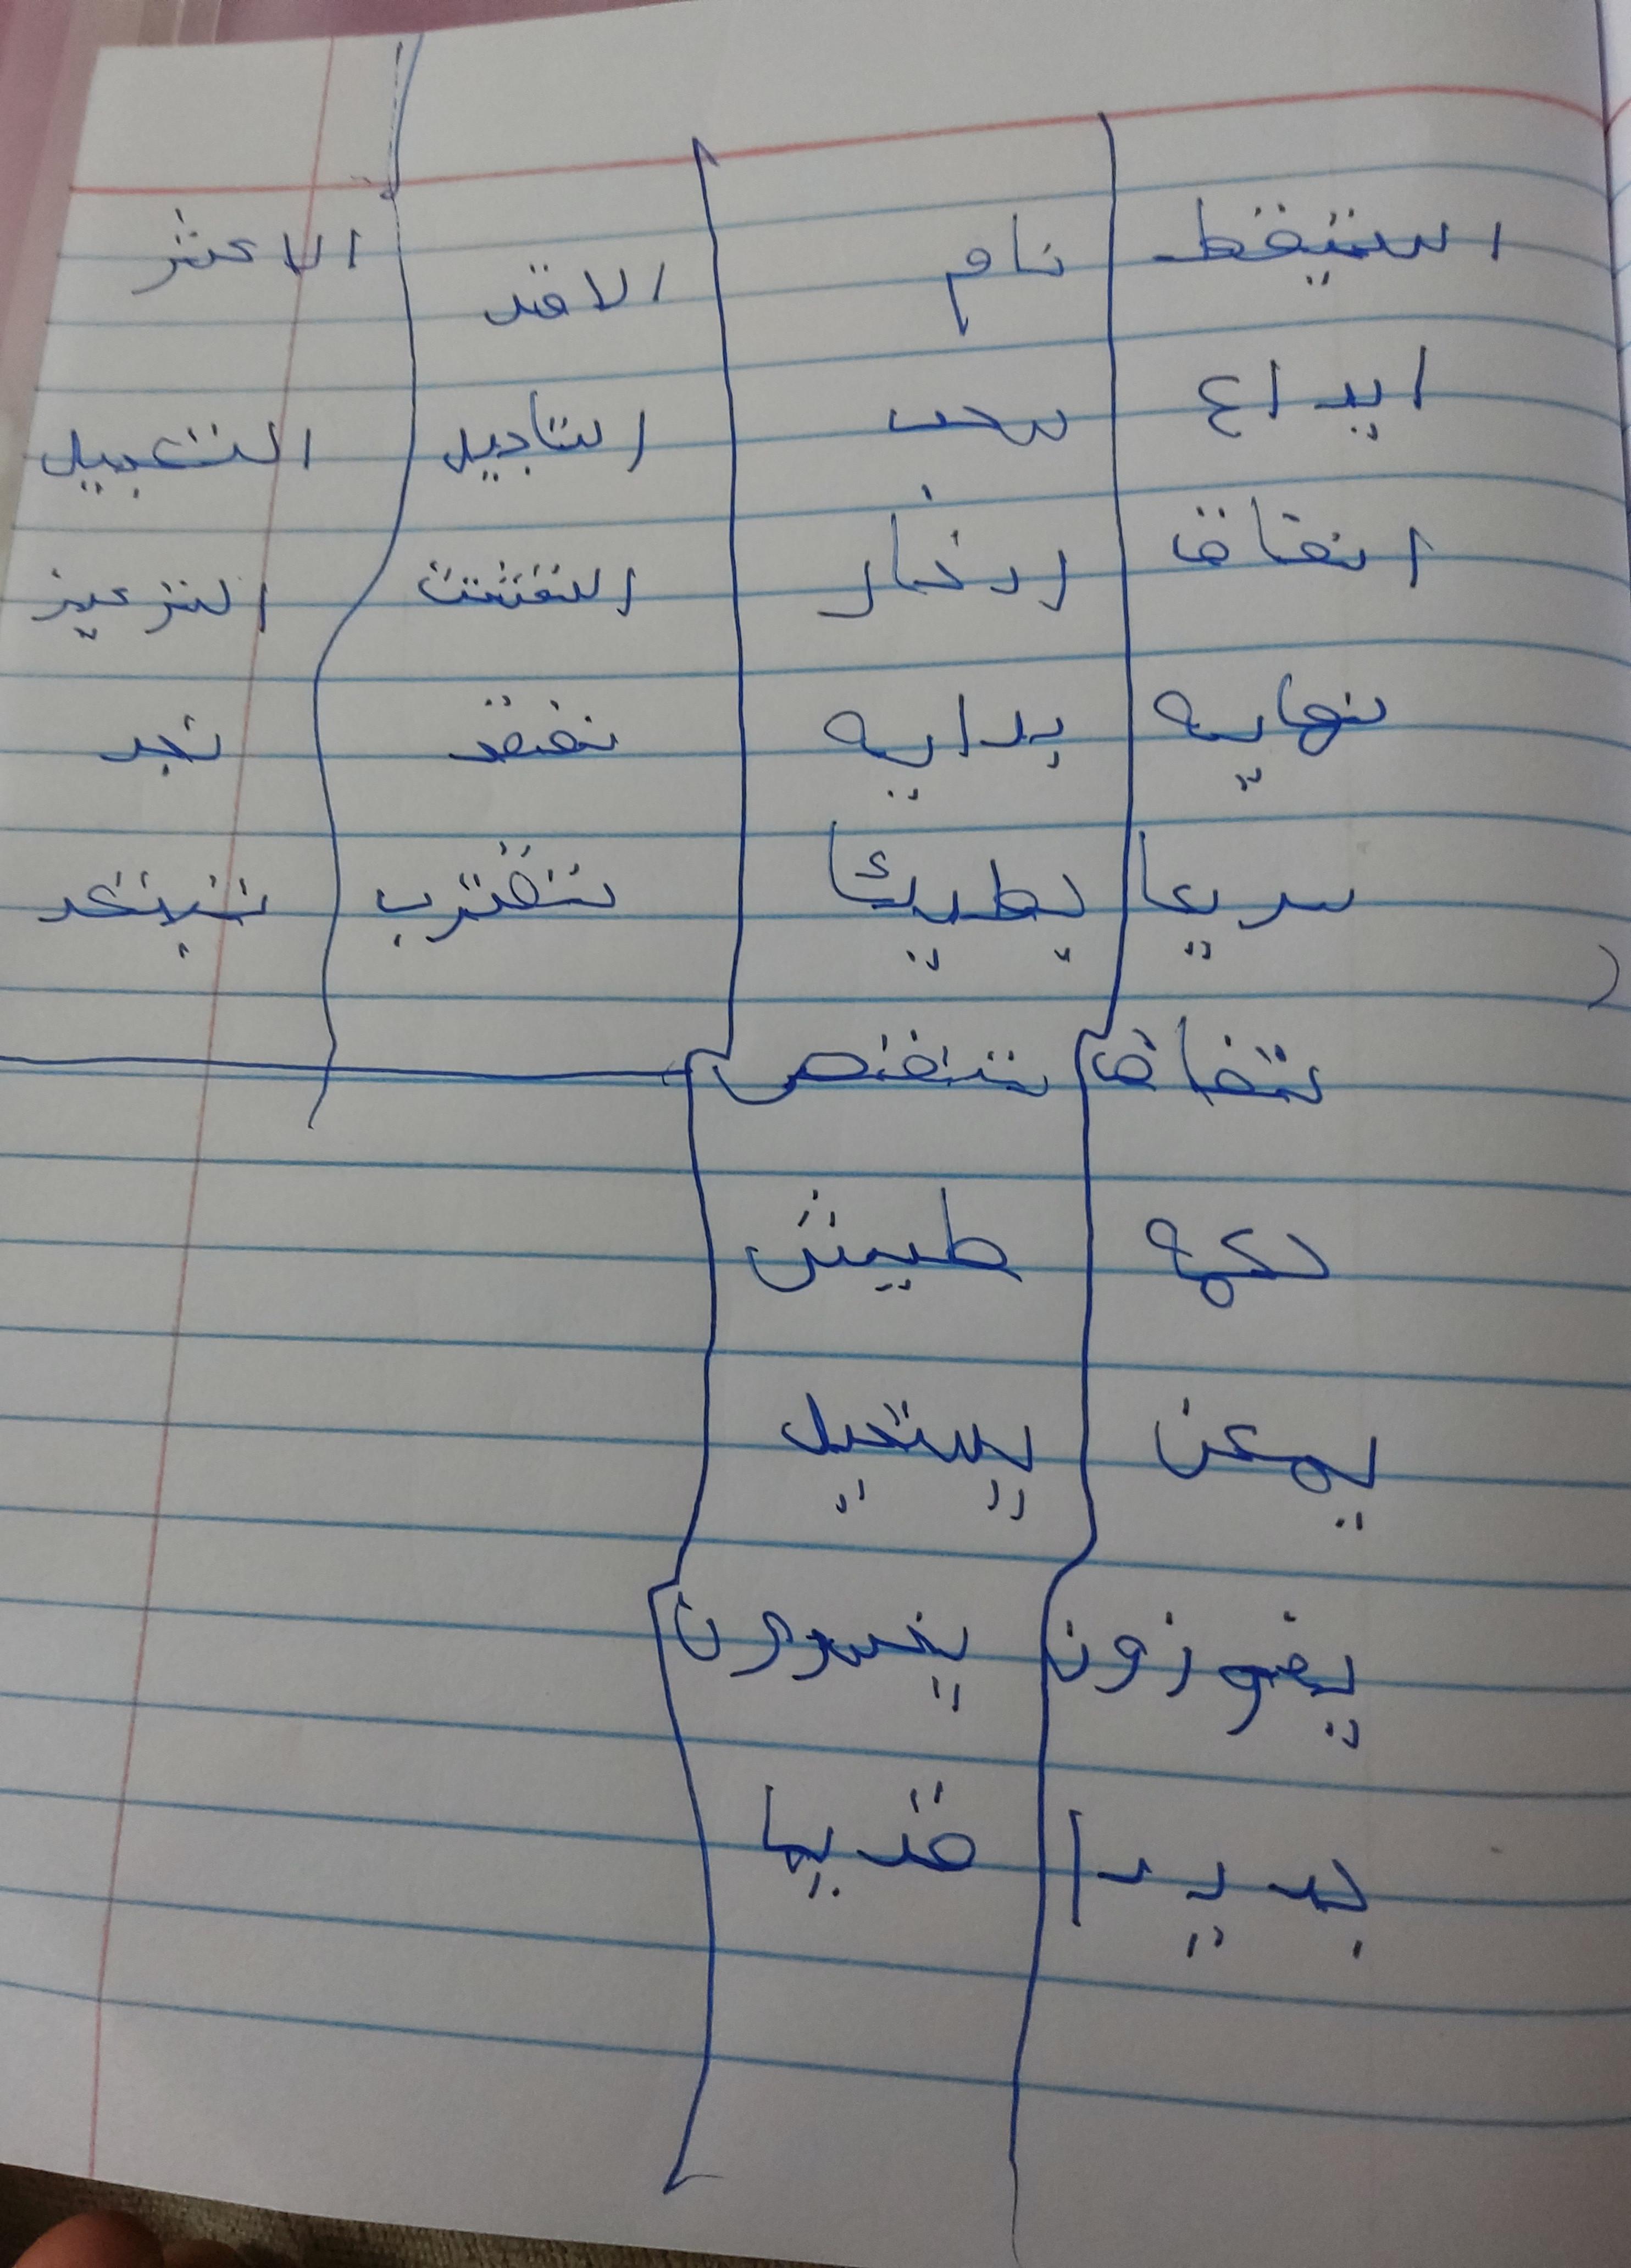 استيقظ نام الاقد الاكثر
ايداع سحب التاجيل التعجيل
انفاق ادخار التشتت التركيز
نهايه بدايه نفتقد نجد
سريعا بطيئا تقترب تبتعد
تتفاق تنتقص
حكمه طيش
يمكن يستحيل
يفوزون يخسرون
جديدا قديما